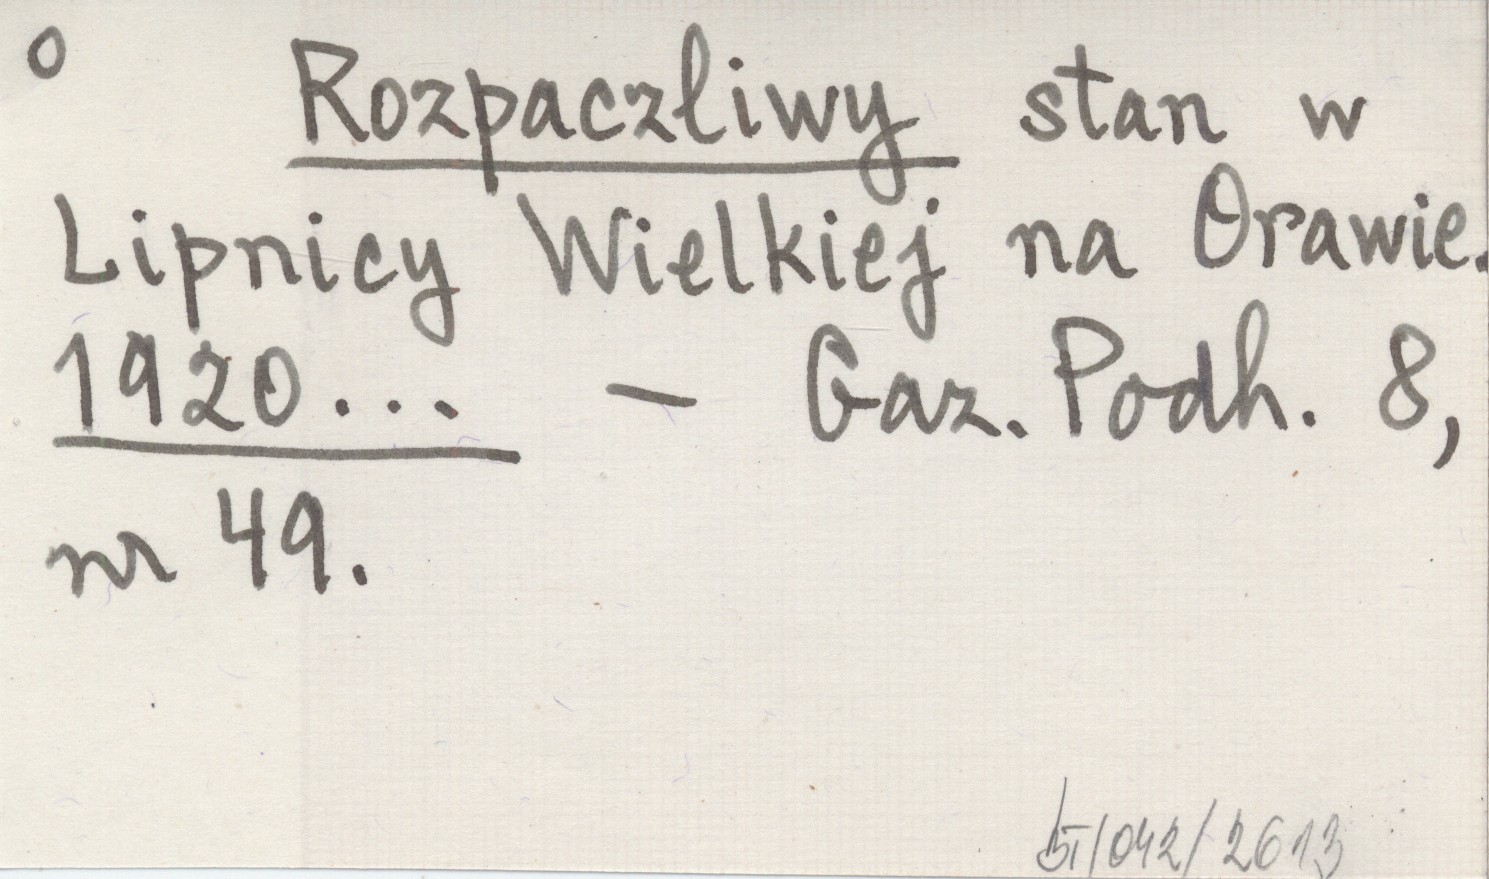 o Rozpaczliwy stan w
Lipnicy Wielkiej na Orawie.
1920... – Gaz. Podh. 8,
nr 49.
/042/2613